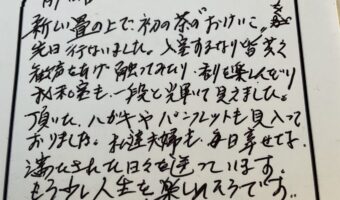 新しい畳の上で、初の茶の"おけいこ"を
先日行ないました。入室するなり皆さん
歓声をあげ、触ってみたり、香りを楽しんだり
お和室も、一段と光輝いて見えました。
頂いた、ハガキやパンフレットも見入って
おりました。私達夫婦も、毎日幸せで、
満たされた日々を送っています。
もう少し人生を楽しめそうです。